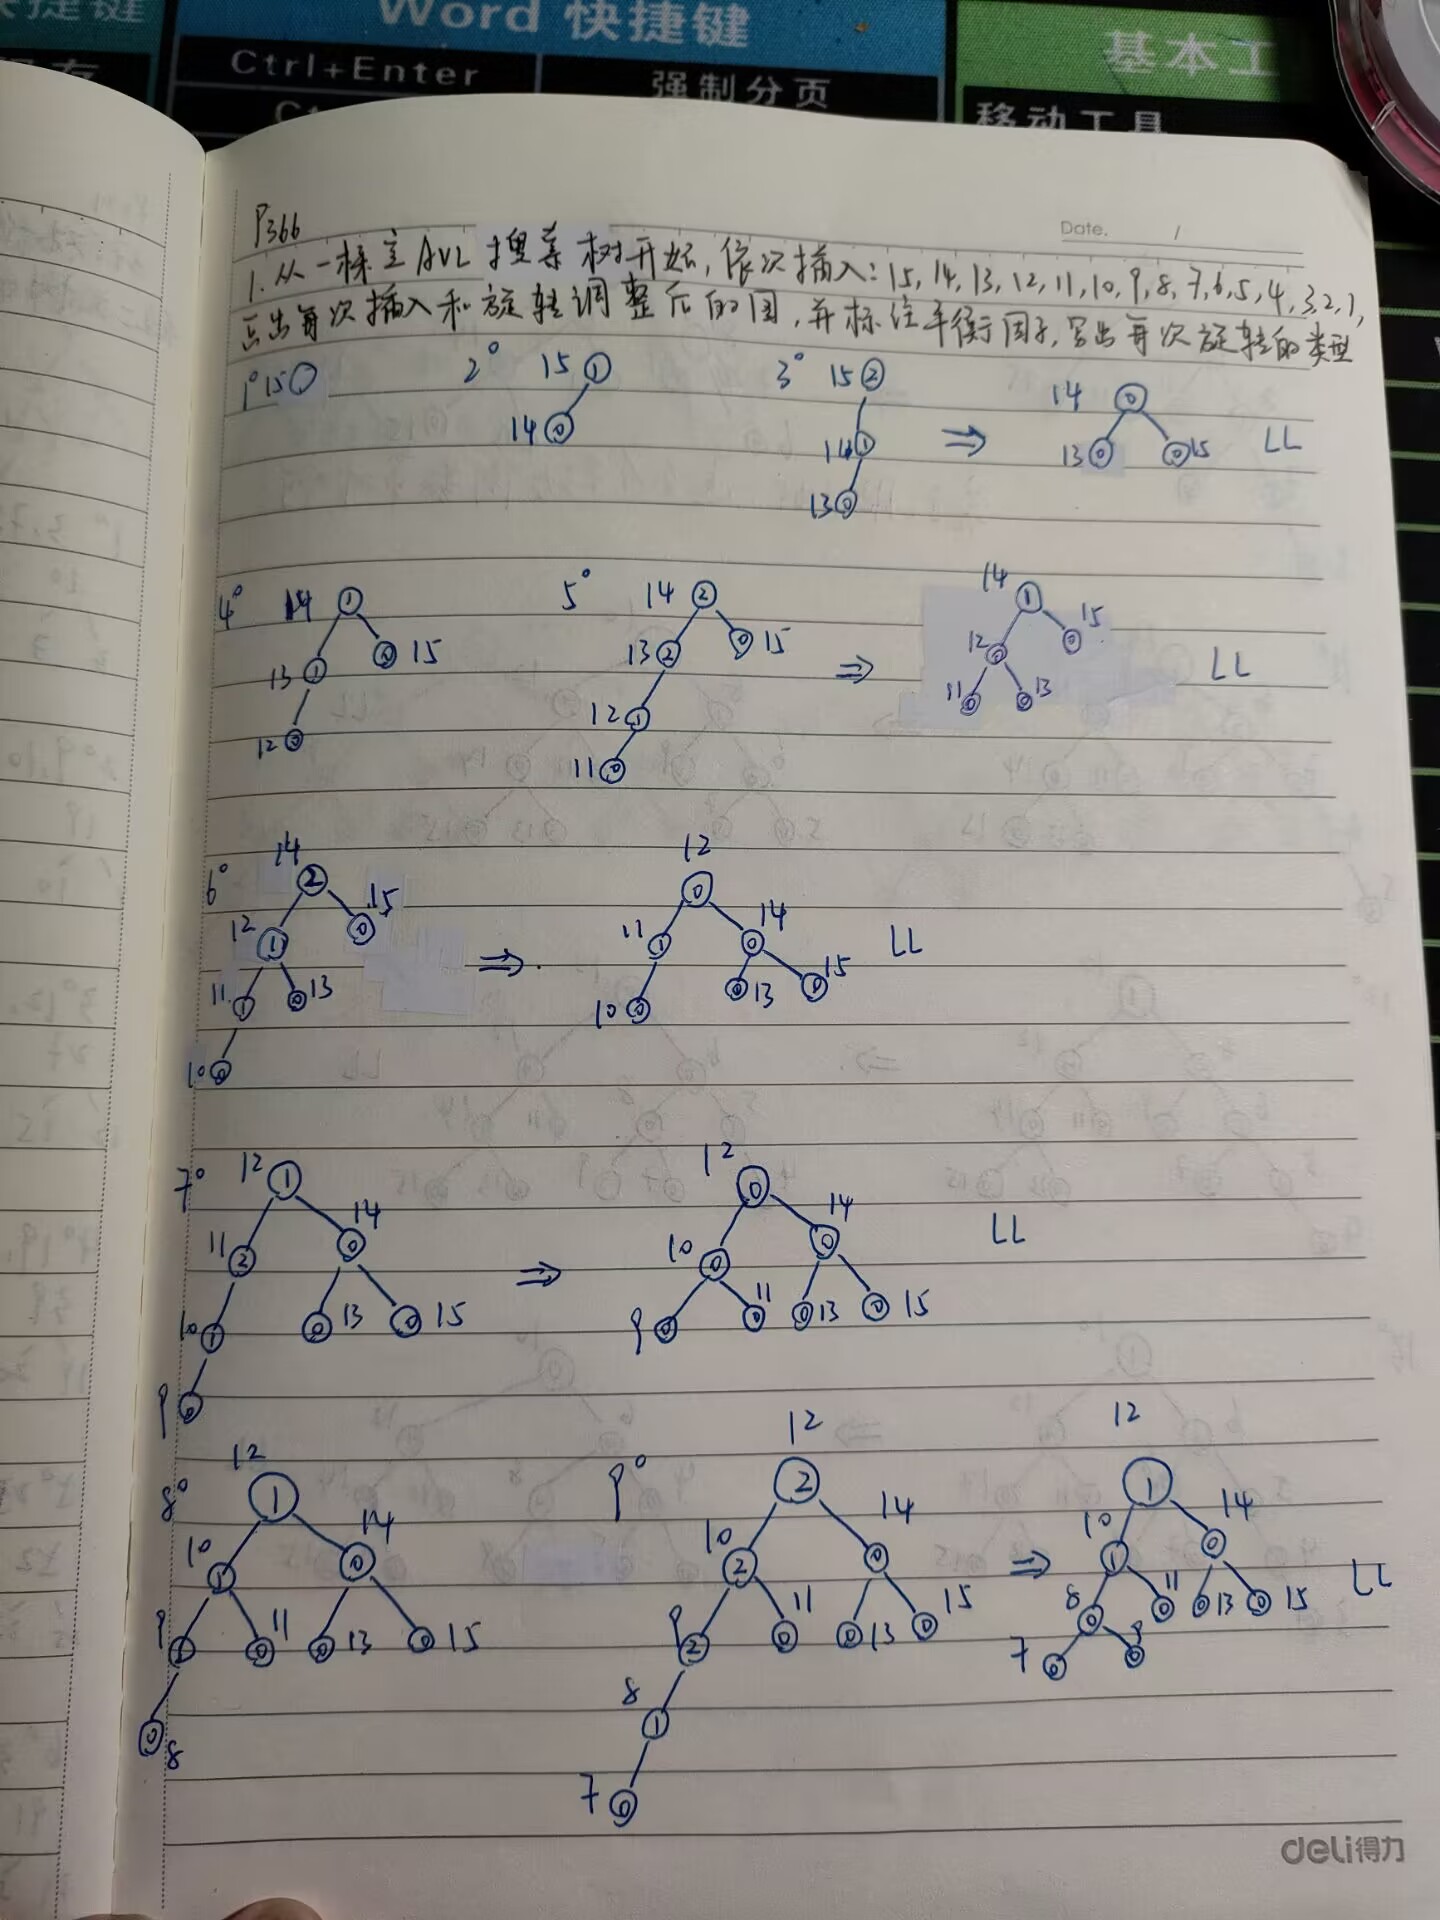 快捷键
Word 快捷键
Ctrl+Enter
强制分页
基本工
移动工具
P366
Date.
1.从一棵空AVL搜索树开始,依次插入:15,14,13,12,11,10,9,8,7,6,5,4,3,2,1,
画出每次插入和旋转调整后的图,并标注平衡因子,写出每次旋转的类型
1° 15 2° 15 1 14 0 3° 15 2 14 1 13 0 ⇒ 14 0 13 0 0 15 LL
4° 14 1 13 1 0 15 12 0 5° 14 2 13 2 0 15 12 1 11 0 ⇒ 14 1 12 0 0 15 11 0 0 13 LL
6° 14 2 12 1 0 15 11 1 0 13 10 0 ⇒ 12 0 11 1 14 0 10 0 0 13 0 15 LL
7° 12 1 11 2 14 0 10 1 0 13 0 15 9 0 ⇒ 12 0 10 0 14 0 9 0 11 0 0 13 0 15 LL
8° 12 1 10 1 14 0 9 1 0 11 0 13 0 15 0 8
9° 12 2 10 2 14 0 9 2 0 11 0 13 0 15 8 1 7 0 ⇒ 12 1 10 1 14 0 8 0 11 0 0 13 0 15 7 0 9 0 LL
deli得力